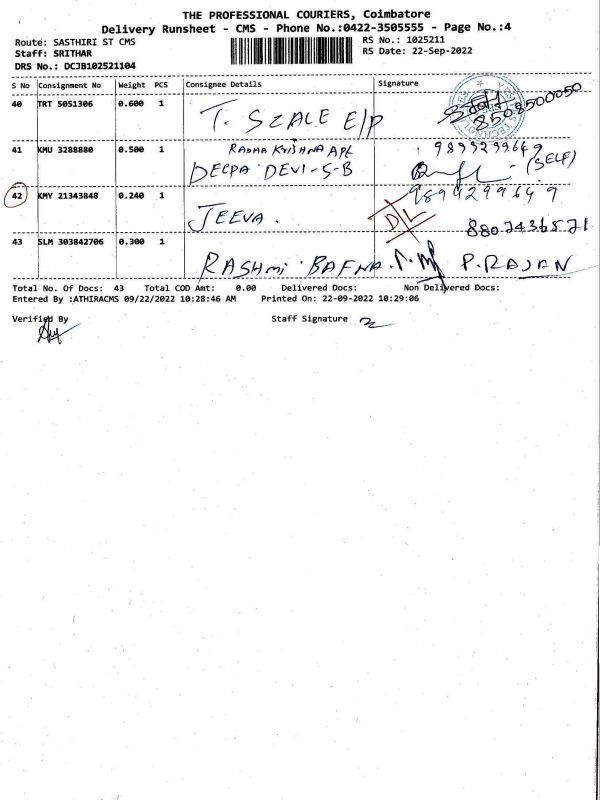 THE PROFESSIONAL COURIERS, Coimbatore
Delivery Runsheet - CMS - Phone No.:0422-3505555 - Page No.:4
Route: SASTHIRI ST CMS
Staff: SRITHAR
DRS No.: DCJB102521104
RS No.: 1025211
RS Date: 22-Sep-2022
S No Consignment No Weight PCS Consignee Details Signature
40 TRT 5051306 0.600 1 T. SZALE E/P 8508500050
41 KMU 3288880 0.500 1 RADHA KRISHNA APL 9899299649
DEEPA DEVI-S-B (SELF)
42 KMY 21343848 0.240 1 JEEVA. D/L 9899299649
43 SLM 303842706 0.300 1 RASHMI BAFNA P.RAJAN
Total No. Of Docs: 43 Total COD Amt: 0.00 Delivered Docs: Non Delivered Docs:
Entered By :ATHIRACMS 09/22/2022 10:28:46 AM Printed On: 22-09-2022 10:29:06
Verified By Staff Signature